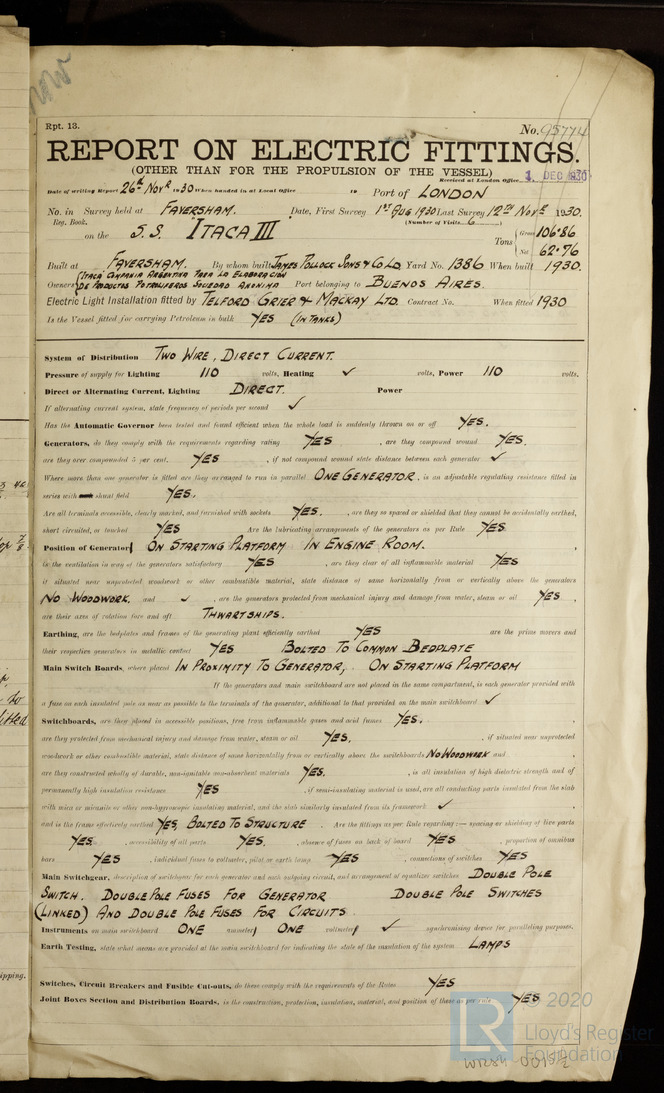 Rpt. 13.
No. 95774
REPORT ON ELECTRIC FITTINGS.
(OTHER THAN FOR THE PROPULSION OF THE VESSEL)
Received at London Office 3 DEC 1930
Date of writing Report 26th Novr 1930 When handed in at Local Office 19 Port of LONDON
No. in Survey held at FAVERSHAM. Date, First Survey 1st Aug 1930 Last Survey 12th Novr 1930.
Reg. Book. (Number of Visits 6)
on the S.S. ITACA III Tons Gross 106.86
Net 62.76
Built at FAVERSHAM. By whom built JAMES POLLOCK SONS & Co LD Yard No. 1386 When built 1930.
Owners (ITACA COMPANIA ARGENTINA PARA LA ELABORACION
DE PRODUCTOS POTROLIFEROS SOCIEDAD ANONIMA Port belonging to BUENOS AIRES.
Electric Light Installation fitted by TELFORD GRIER & MACKAY LTD. Contract No. When fitted 1930
Is the Vessel fitted for carrying Petroleum in bulk YES (IN TANKS)
System of Distribution TWO WIRE, DIRECT CURRENT.
Pressure of supply for Lighting 110 volts, Heating ✓ volts, Power 110 volts.
Direct or Alternating Current, Lighting DIRECT. Power
If alternating current system, state frequency of periods per second ✓
Has the Automatic Governor been tested and found efficient when the whole load is suddenly thrown on or off YES.
Generators, do they comply with the requirements regarding rating YES, are they compound wound YES.
are they over compounded 5 per cent. YES, if not compound wound state distance between each generator ✓
Where more than one generator is fitted are they arranged to run in parallel ONE GENERATOR, is an adjustable regulating resistance fitted in
series with shunt field YES.
Are all terminals accessible, clearly marked, and furnished with sockets YES., are they so spaced or shielded that they cannot be accidentally earthed,
short circuited, or touched YES Are the lubricating arrangements of the generators as per Rule YES
Position of Generator ON STARTING PLATFORM IN ENGINE ROOM.
is the ventilation in way of the generators satisfactory YES, are they clear of all inflammable material YES
if situated near unprotected woodwork or other combustible material, state distance of same horizontally from or vertically above the generators
NO WOODWORK. and ✓, are the generators protected from mechanical injury and damage from water, steam or oil YES,
are their axes of rotation fore and aft THWARTSHIPS.
Earthing, are the bedplates and frames of the generating plant efficiently earthed YES are the prime movers and
their respective generators in metallic contact YES BOLTED TO COMMON BEDPLATE
Main Switch Boards, where placed IN PROXIMITY TO GENERATOR, ON STARTING PLATFORM
If the generators and main switchboard are not placed in the same compartment, is each generator provided with
a fuse on each insulated pole as near as possible to the terminals of the generator, additional to that provided on the main switchboard ✓
Switchboards, are they placed in accessible positions, free from inflammable gases and acid fumes YES.,
are they protected from mechanical injury and damage from water, steam or oil YES., if situated near unprotected
woodwork or other combustible material, state distance of same horizontally from or vertically above the switchboards NO WOODWORK and
are they constructed wholly of durable, non-ignitable non-absorbent materials YES., is all insulation of high dielectric strength and of
permanently high insulation resistance YES, if semi-insulating material is used, are all conducting parts insulated from the slab
with mica or micanite or other non-hygroscopic insulating material, and the slab similarly insulated from its framework ✓
and is the frame effectively earthed YES, BOLTED TO STRUCTURE. Are the fittings as per Rule regarding:— spacing or shielding of live parts
YES, accessibility of all parts YES., absence of fuses on back of board YES, proportion of omnibus
bars YES, individual fuses to voltmeter, pilot or earth lamp YES, connections of switches YES
Main Switchgear, description of switchgear for each generator and each outgoing circuit, and arrangement of equalizer switches DOUBLE POLE
SWITCH. DOUBLE POLE FUSES FOR GENERATOR DOUBLE POLE SWITCHES
(LINKED) AND DOUBLE POLE FUSES FOR CIRCUITS.
Instruments on main switchboard ONE ammeter ONE voltmeter ✓ synchronising device for paralleling purposes.
Earth Testing, state what means are provided at the main switchboard for indicating the state of the insulation of the system LAMPS
Switches, Circuit Breakers and Fusible Cut-outs, do these comply with the requirements of the Rules YES
Joint Boxes Section and Distribution Boards, is the construction, protection, insulation, material, and position of these as per rule YES
© 2020
LR Lloyd's Register
Foundation